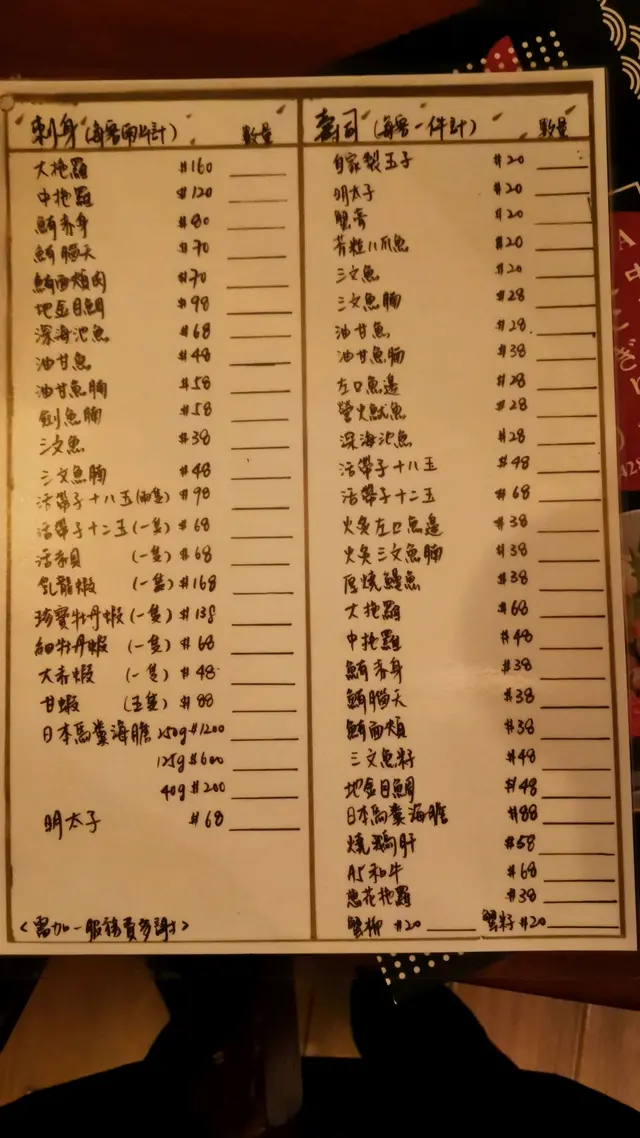 刺身(每客兩片計) 數量
大拖羅 $160
中拖羅 $120
鮪赤身 $80
鮪腦天 $70
鮪面頰肉 $70
地金目鯛 $98
深海池魚 $68
油甘魚 $48
油甘魚腩 $58
劍魚腩 $58
三文魚 $38
三文魚腩 $48
活帶子十八玉(兩隻) $98
活帶子十二玉(一隻) $68
活赤貝 (一隻) $68
(一隻) $168
牡丹蝦(一隻) $138
細牡丹蝦 (一隻) $68
大赤蝦 (一隻) $48
甘蝦 (五隻) $88
日本馬糞海膽 250g $1200
125g $600
40g $200
明太子 $68
<需加一服務費多謝>
壽司(每客一件計) 數量
自家製玉子 $20
明太子 $20
蟹膏 $20
芥粒八爪魚 $20
三文魚 $20
三文魚腩 $28
油甘魚 $28
油甘魚腩 $38
左口魚邊 $28
螢火魷魚 $28
深海池魚 $28
活帶子十八玉 $48
活帶子十二玉 $68
火炙左口魚邊 $38
火炙三文魚腩 $38
厚燒鰻魚 $38
大拖羅 $68
中拖羅 $48
鮪赤身 $38
鮪腦天 $38
鮪面頰 $38
三文魚籽 $48
地金目鯛 $48
日本馬糞海膽 $88
燒鵝肝 $58
A5和牛 $68
葱花拖羅 $38
蟹柳 $20 蟹籽 $20